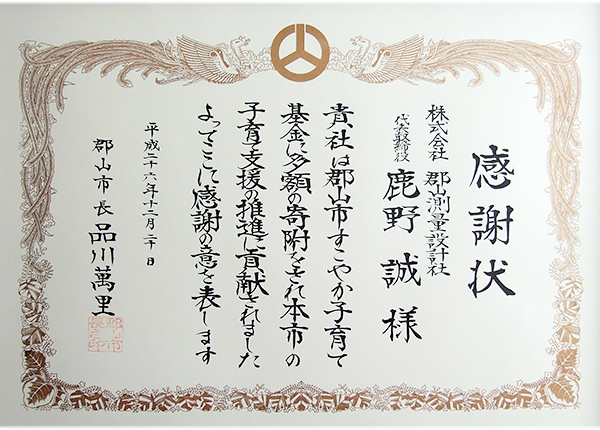 感謝状
株式会社 郡山測量設計社
代表取締役 鹿野 誠 様
貴社は郡山市すこやか子育て
基金に多額の寄附をされ本市の
子育て支援の推進に貢献されました
よってここに感謝の意を表します
平成二十六年十二月二十日
郡山市長 品川萬里